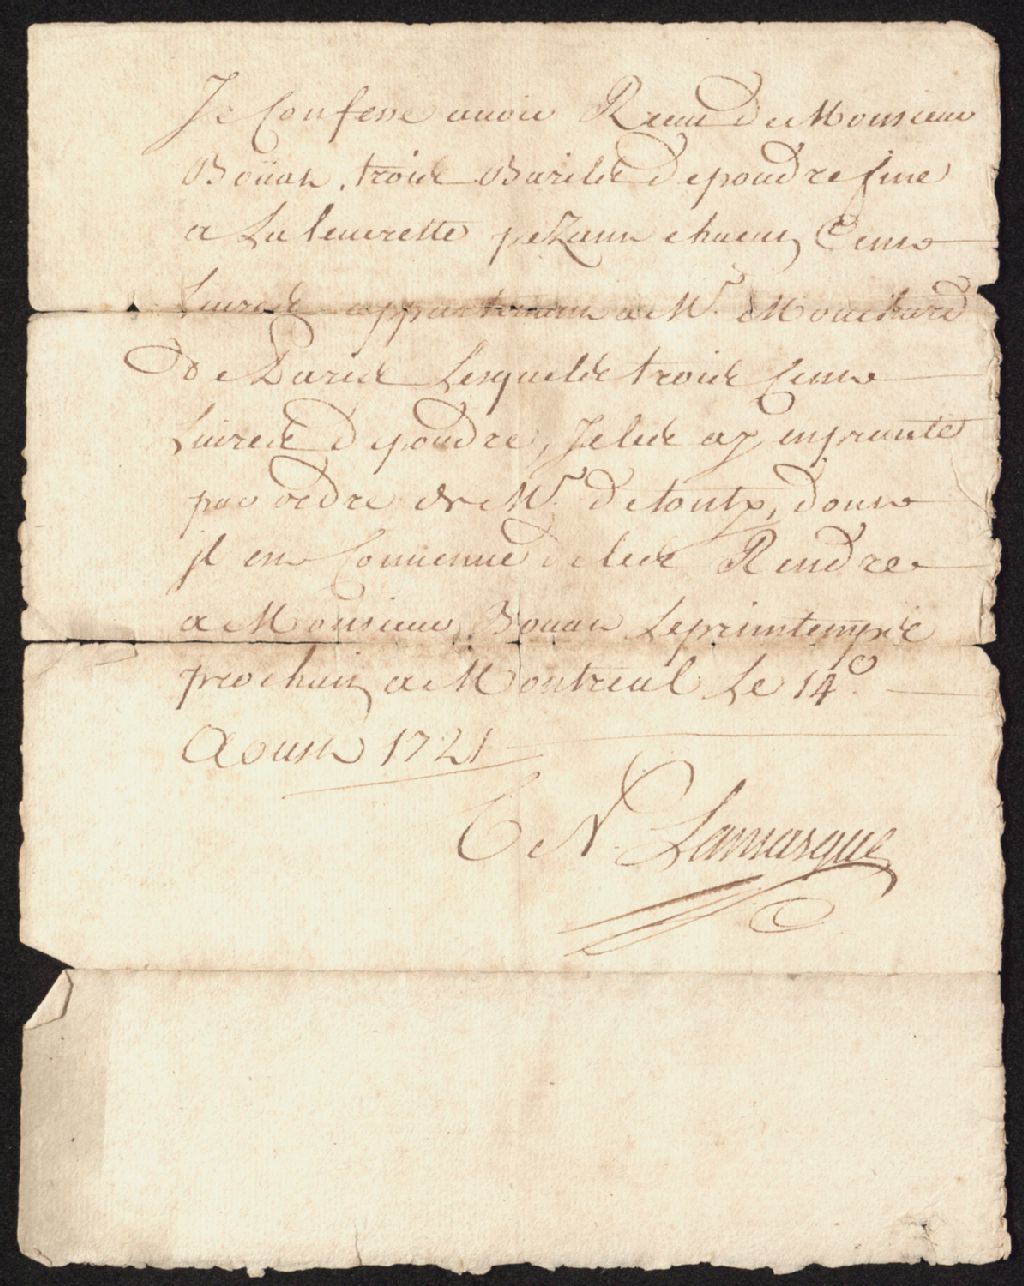 Je Confesse auoir Receu de Monsieur
Boüat, trois Barils de poudre fine
a La leurette pezant chacun Cent
Liures appartenant a Mr. Mouchard
de Paris Lesquels trois Cent
Liures de poudre, Je les ay enprunté
par ordre de Mr. dont
jl en Conuenue de les Rendre
a Monsieur Bouat Le printemps
prochain a Montreal Le 14e.
Aoust 1721
Lamarque